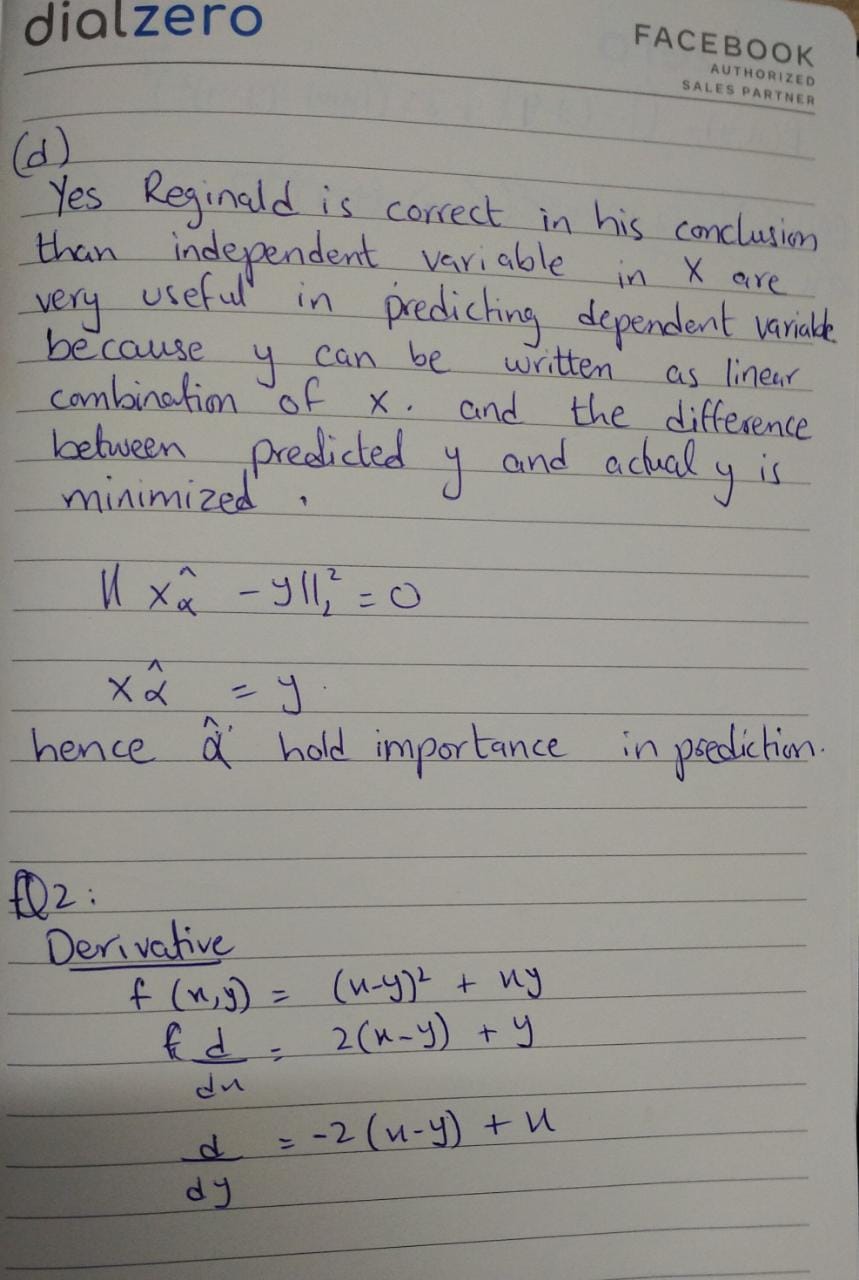 dialzero
FACEBOOK
AUTHORIZED
SALES PARTNER
(d)
Yes Reginald is correct in his conclusion
than independent variable in X are
very useful in predicting dependent variable
because y can be written as linear
combination of x. and the difference
between predicted y and actual y is
minimized.
|| x α̂ - y ||₂² = 0
x α̂ = y.
hence α̂ hold importance in prediction.
Q2:
Derivative
f (x,y) = (x-y)² + xy
f d/dx = 2(x-y) + y
d/dy = -2(x-y) + x